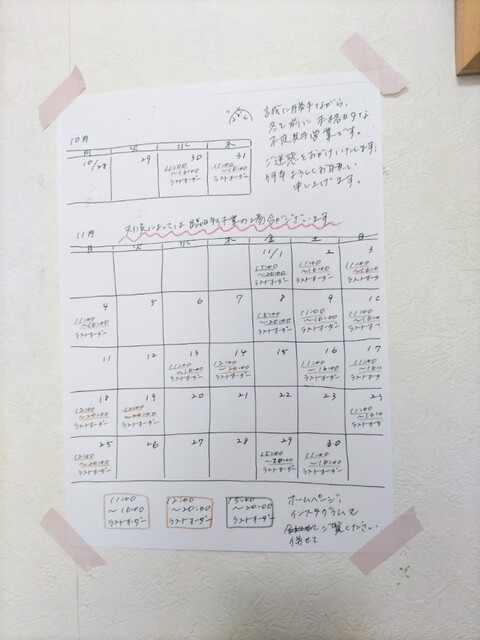 誠に勝手ながら、
冬を前に本格的な
不定期営業です。
ご迷惑をおかけいたします。
何卒よろしくお願い
申し上げます。
10月
月 火 水 木
10/28 29 30 31
11:00 11:00
~16:00 ~16:00
ラストオーダー ラストオーダー
天候によっては臨時休業の場合がございます
11月
月 火 水 木 金 土 日
11/1 2 3
15:00 11:00 11:00
~20:00 ~16:00 ~16:00
ラストオーダー ラストオーダー ラストオーダー
4 5 6 7 8 9 10
11:00 15:00 11:00 11:00
~16:00 ~20:00 ~16:00 ~16:00
ラストオーダー ラストオーダー ラストオーダー ラストオーダー
11 12 13 14 15 16 17
11:00 12:00 11:00 11:00
~16:00 ~20:00 ~16:00 ~16:00
ラストオーダー ラストオーダー ラストオーダー ラストオーダー
18 19 20 21 22 23
12:00 12:00 11:00
~20:00 ~20:00 ~16:00
ラストオーダー ラストオーダー ラストオーダー
25 26 27 28 29 30
12:00 15:00 11:00
~20:00 ~20:00 ~16:00
ラストオーダー ラストオーダー ラストオーダー
11:00 12:00 15:00
~16:00 ~20:00 ~20:00
ラストオーダー ラストオーダー ラストオーダー
ホームページ、
インスタグラムも
ご覧ください
併せて